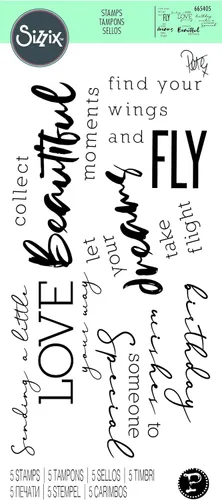 sizzix
STAMPS
TAMPONS
SELLOS
665405
Pete
find your
wings
and
FLY
collect
Beautiful
moments
let
your
dreams
take
flight
Sending a little
LOVE
your way
birthday
wishes to
someone
Special
5 STAMPS | 5 TAMPONS | 5 SELLOS | 5 TIMBRI
5 ПЕЧАТИ | 5 STEMPEL | 5 CARIMBOS